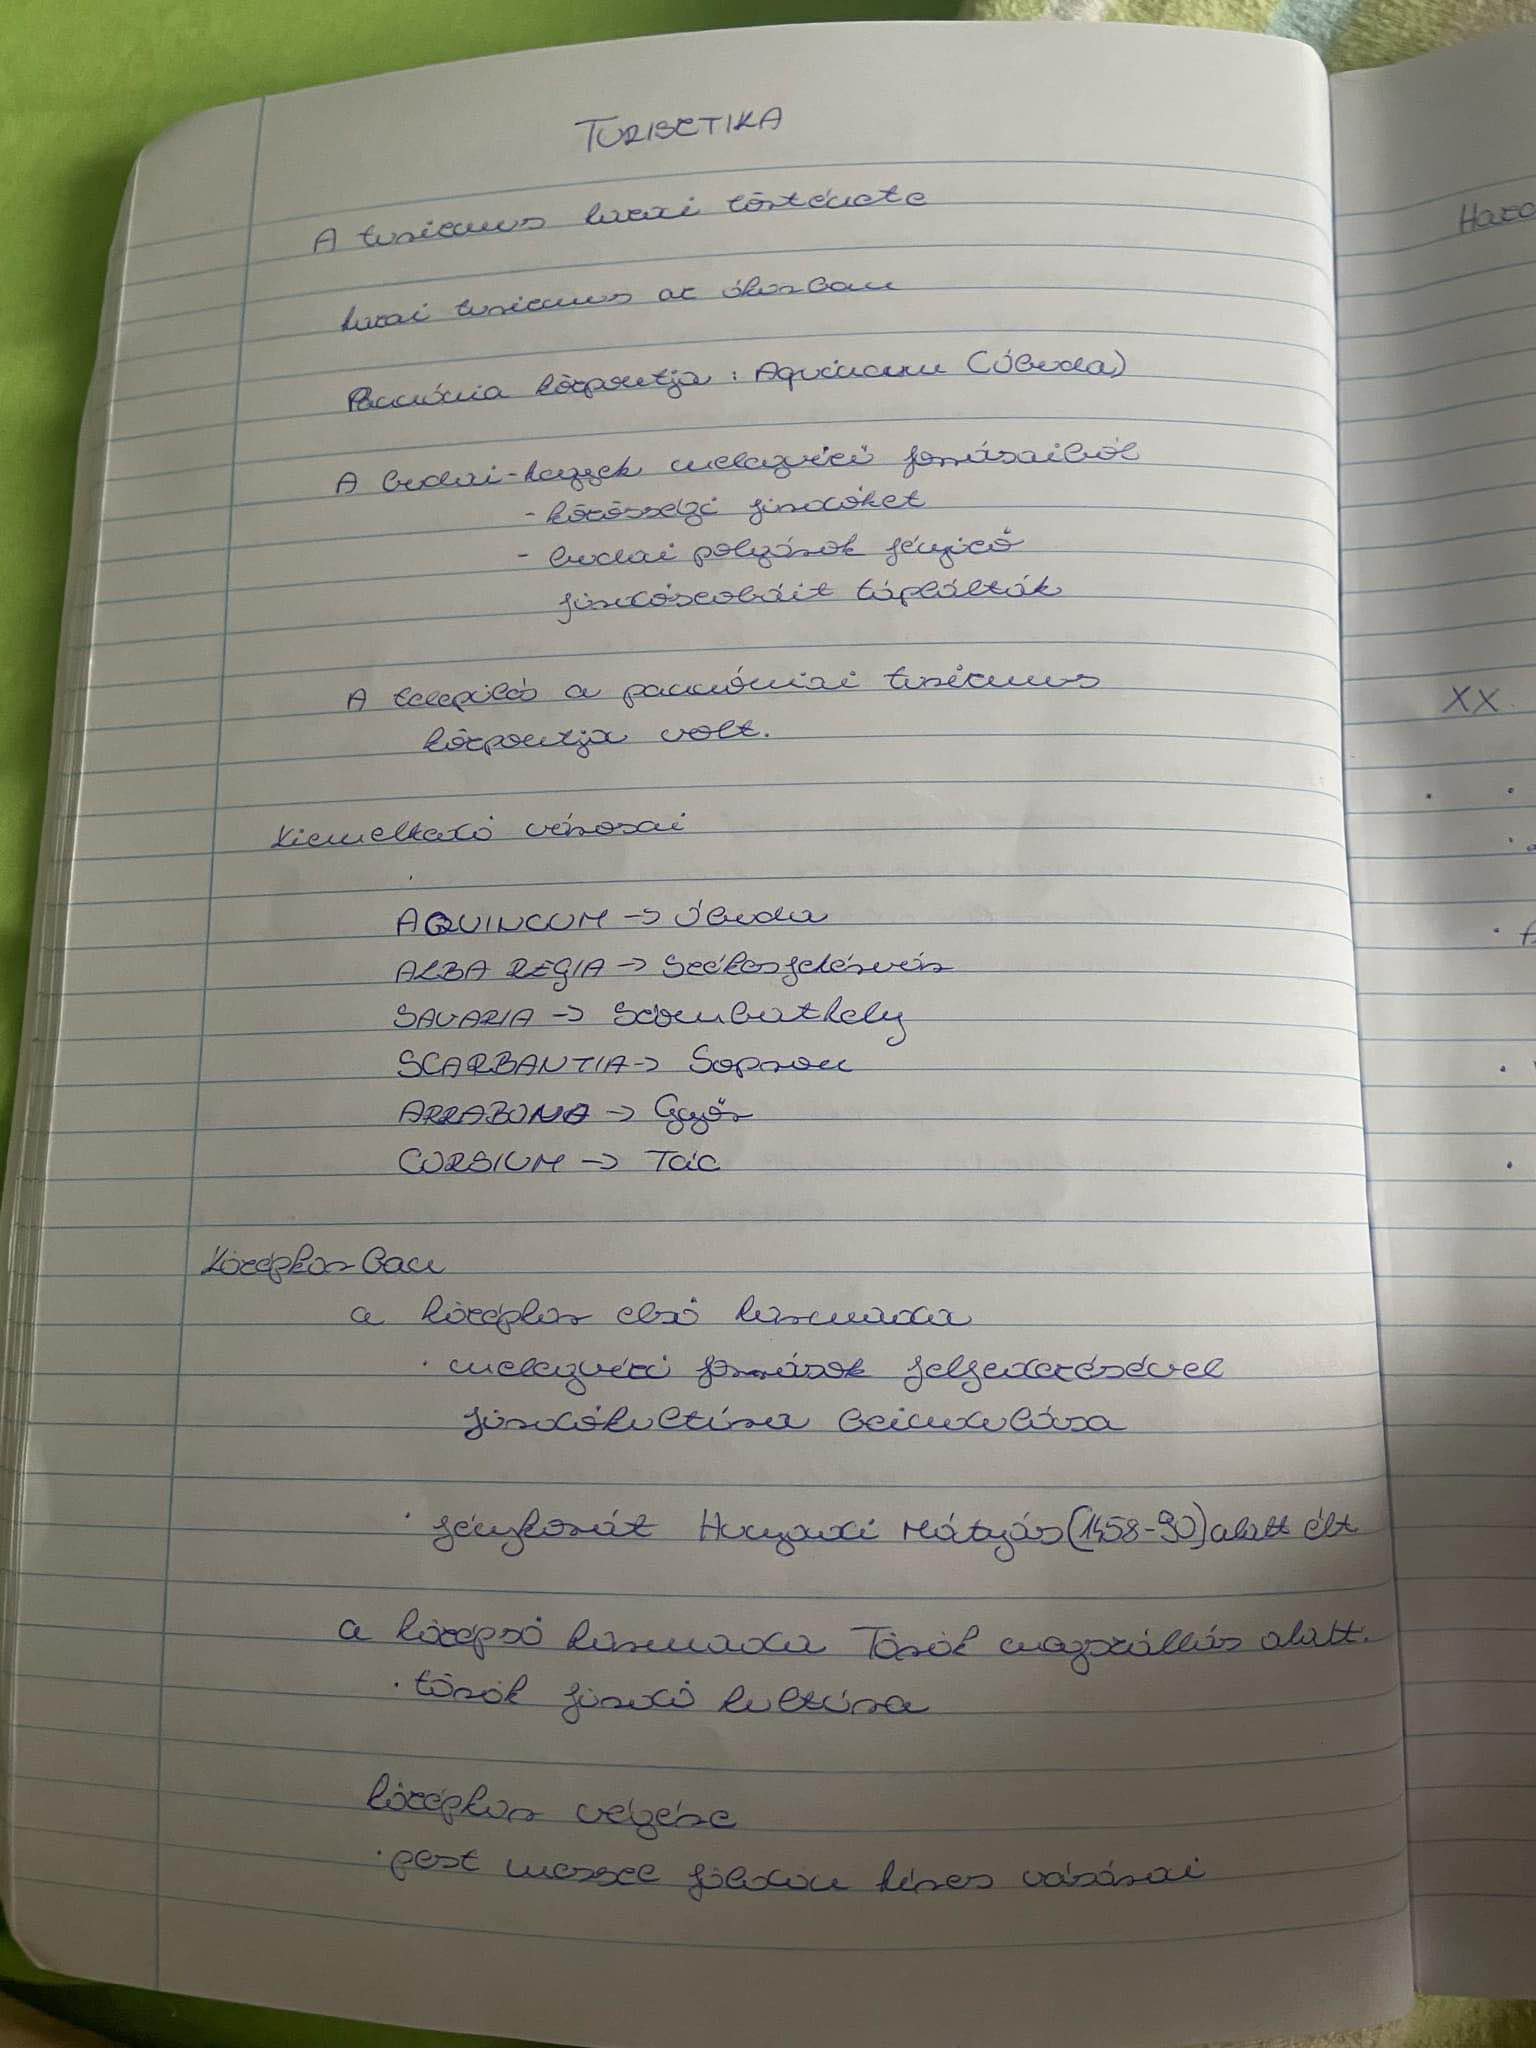 TURISZTIKA
A turizmus hazai története
hazai turizmus az ókorban
Pannónia központja: Aquincum (Óbuda)
A budai-hegyek melegvizű forrásaiból
- közösségi fürdőket
- budai polgárok fényűző
fürdőszobáit táplálták
A település a pannóniai turizmus
központja volt.
Kiemelkedő városai
AQUINCUM -> Óbuda
ALBA REGIA -> Székesfehérvár
SAVARIA -> Szombathely
SCARBANTIA -> Sopron
ARRABONA -> Győr
CORSIUM -> Tác
Középkorban
a középkor első harmada
· melegvizű források felfedezésével
fürdőkultúra beindulása
· fénykorát Hunyadi Mátyás (1458-90) alatt élt
a középső harmada Török megszállás alatt.
· török fürdő kultúra
középkor végére
· pest messze földön híres vásárai
XX.